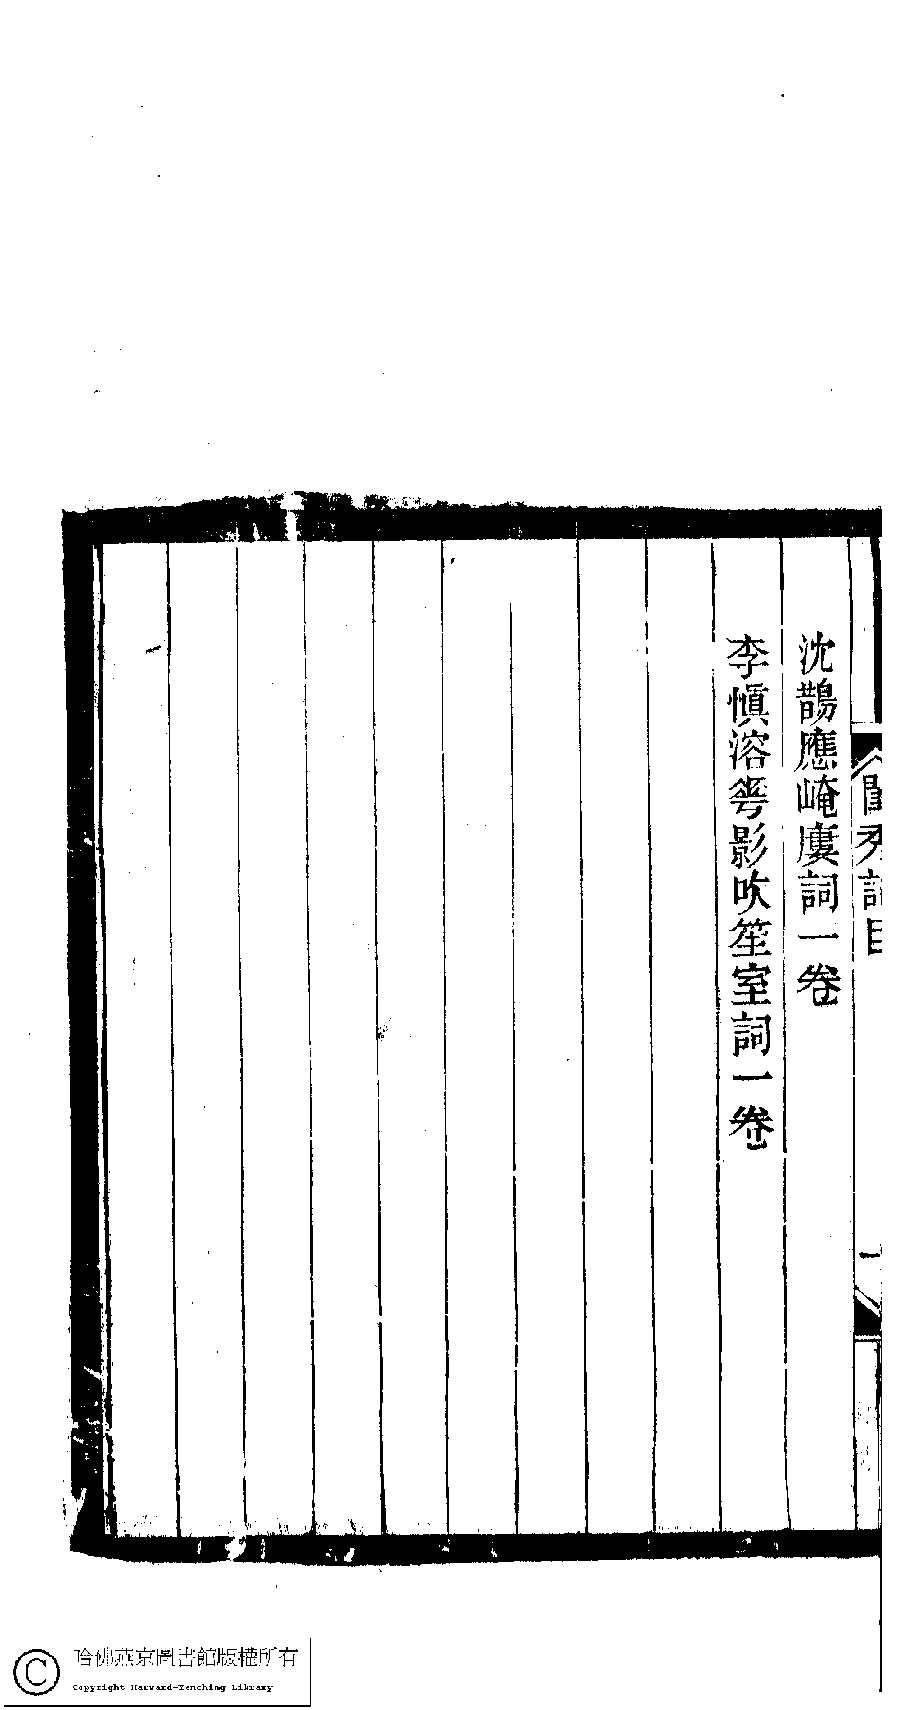 閨秀詞目
一
沈鵲應崦廔詞一卷
李慎溶花影吹笙室詞一卷
哈佛燕京圖書館版權所有
Copyright Harvard-Yenching Library